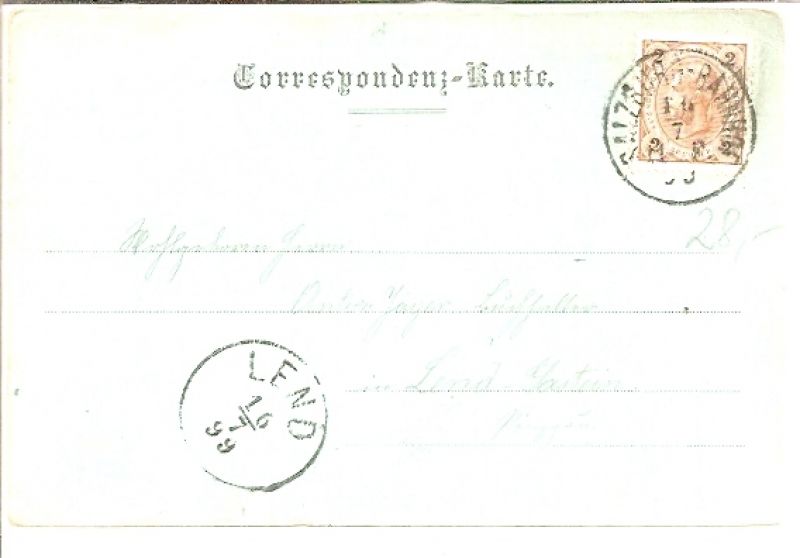 Correspondenz-Karte.
2 2
SALZBURG BAHNHOF
16
7
99
2 2
Wohlgeboren Herrn
28,-
Jäger Buchhalter
in Lend-Gastein
Pinzgau
LEND
16
7
99